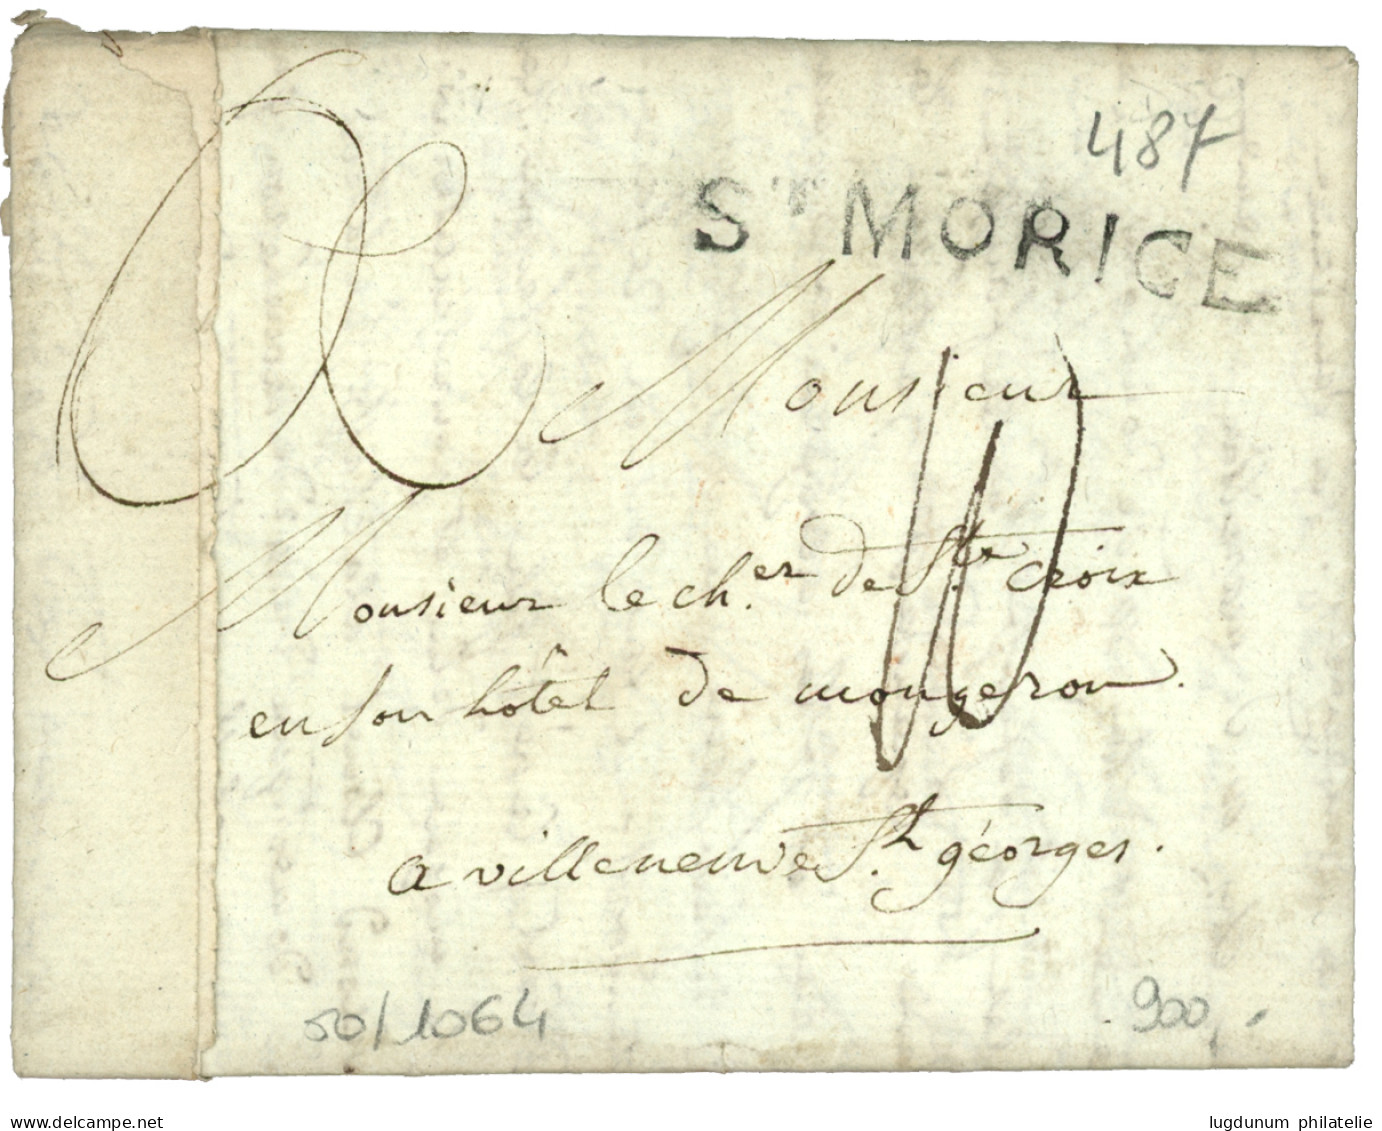 487
ST MORICE
Monsieur
10
Monsieur le ch.er de Ste Croix
en son hôtel de mongeron.
a villeneuve St. géorges.
50/1064
900,-
www.delcampe.net
lugdunum philatelie